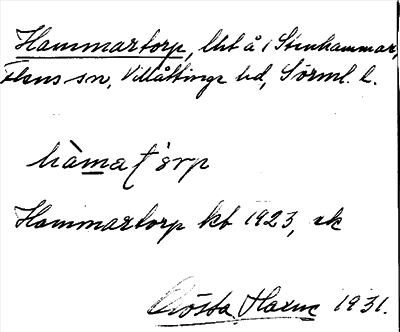 Hammartorp, lht å i Stenhammar,
Flens sn, Villåttinge hd, Sörml. l.
Hammartorp kb 1923, ek
Gösta 1931.